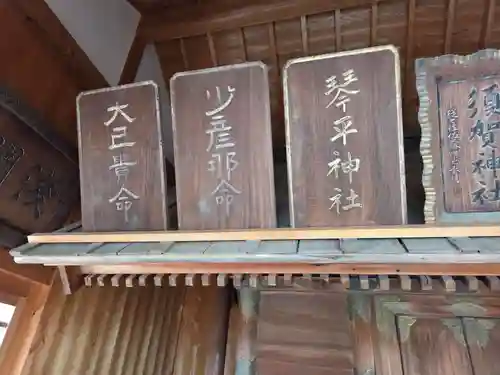 大己貴命
少彦那命
琴平神社
須賀神